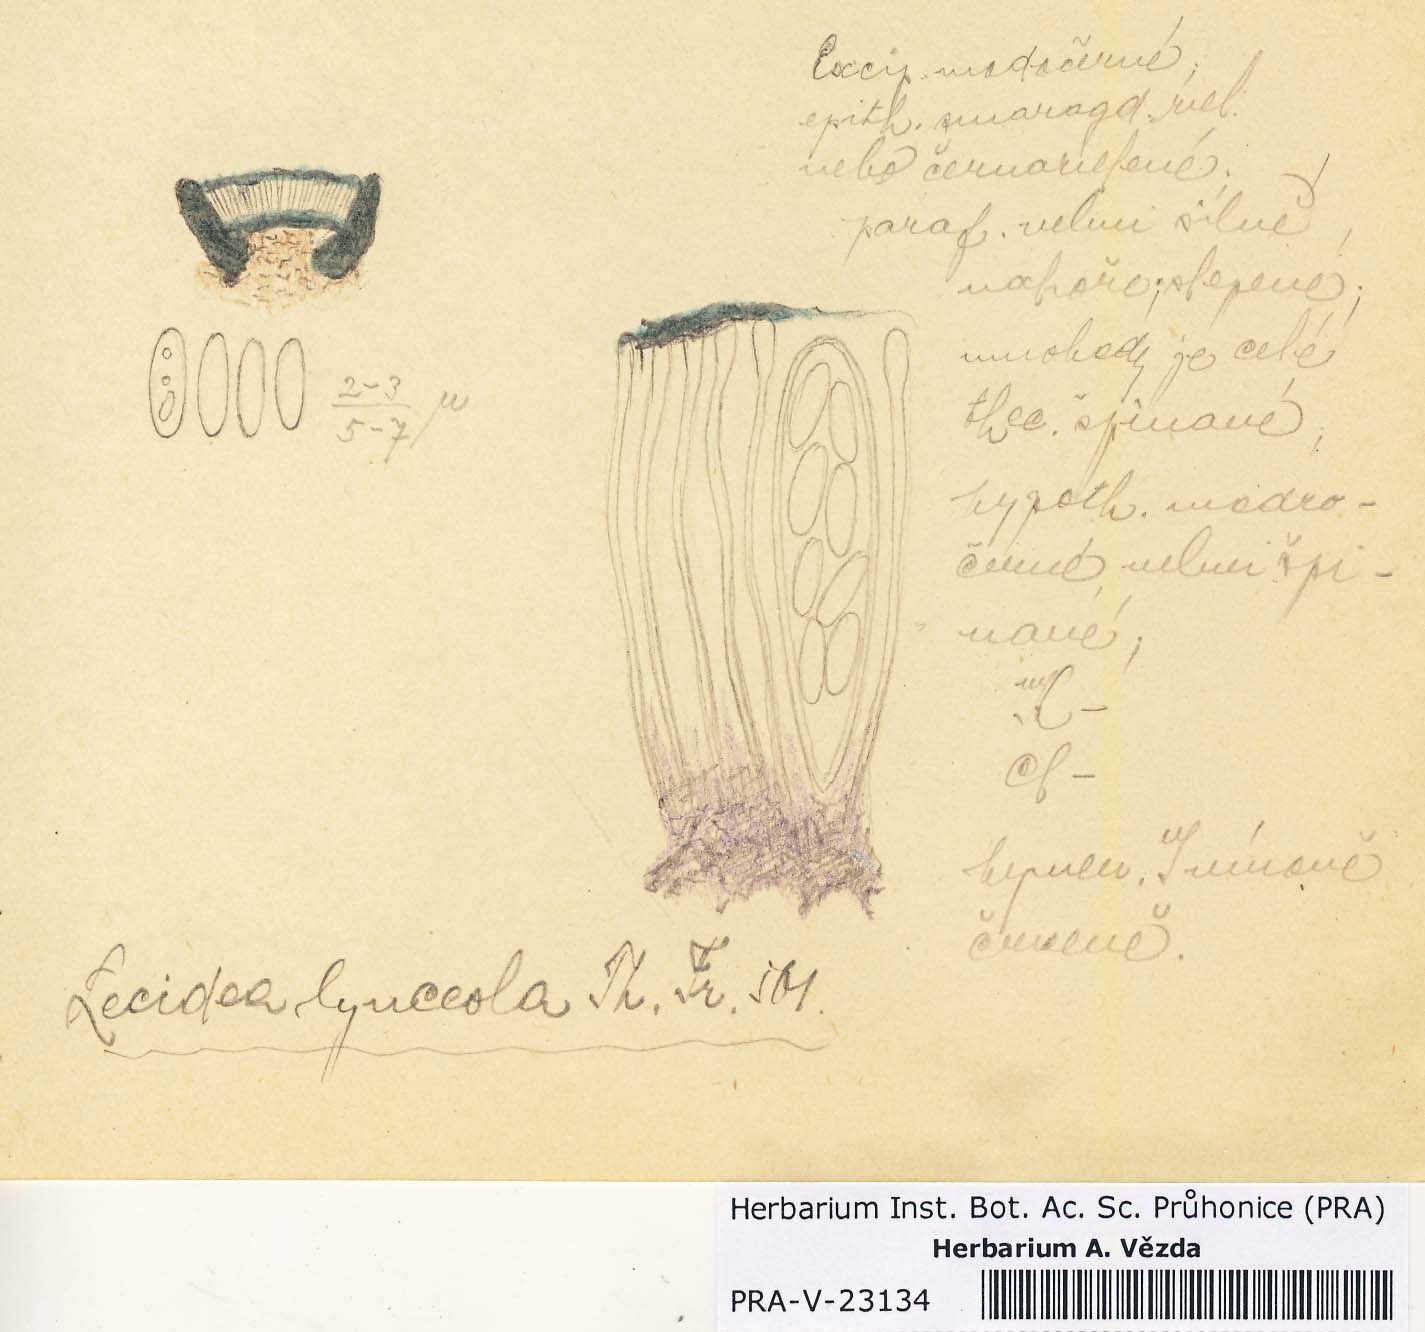 Excip. modočerné,
epith. smaragd. zel.
nebo černozelené;
paraf. velmi silně,
nahoře slepené;
mnohdy je celé
thec. špinavé;
hypoth. modro-
černé velmi špi-
navé;
C –
Cl –
hymen. J vínově
červeně.
2-3
5-7 μ
Lecidea lynceola Th. Fr.
Herbarium Inst. Bot. Ac. Sc. Průhonice (PRA)
Herbarium A. Vězda
PRA-V-23134